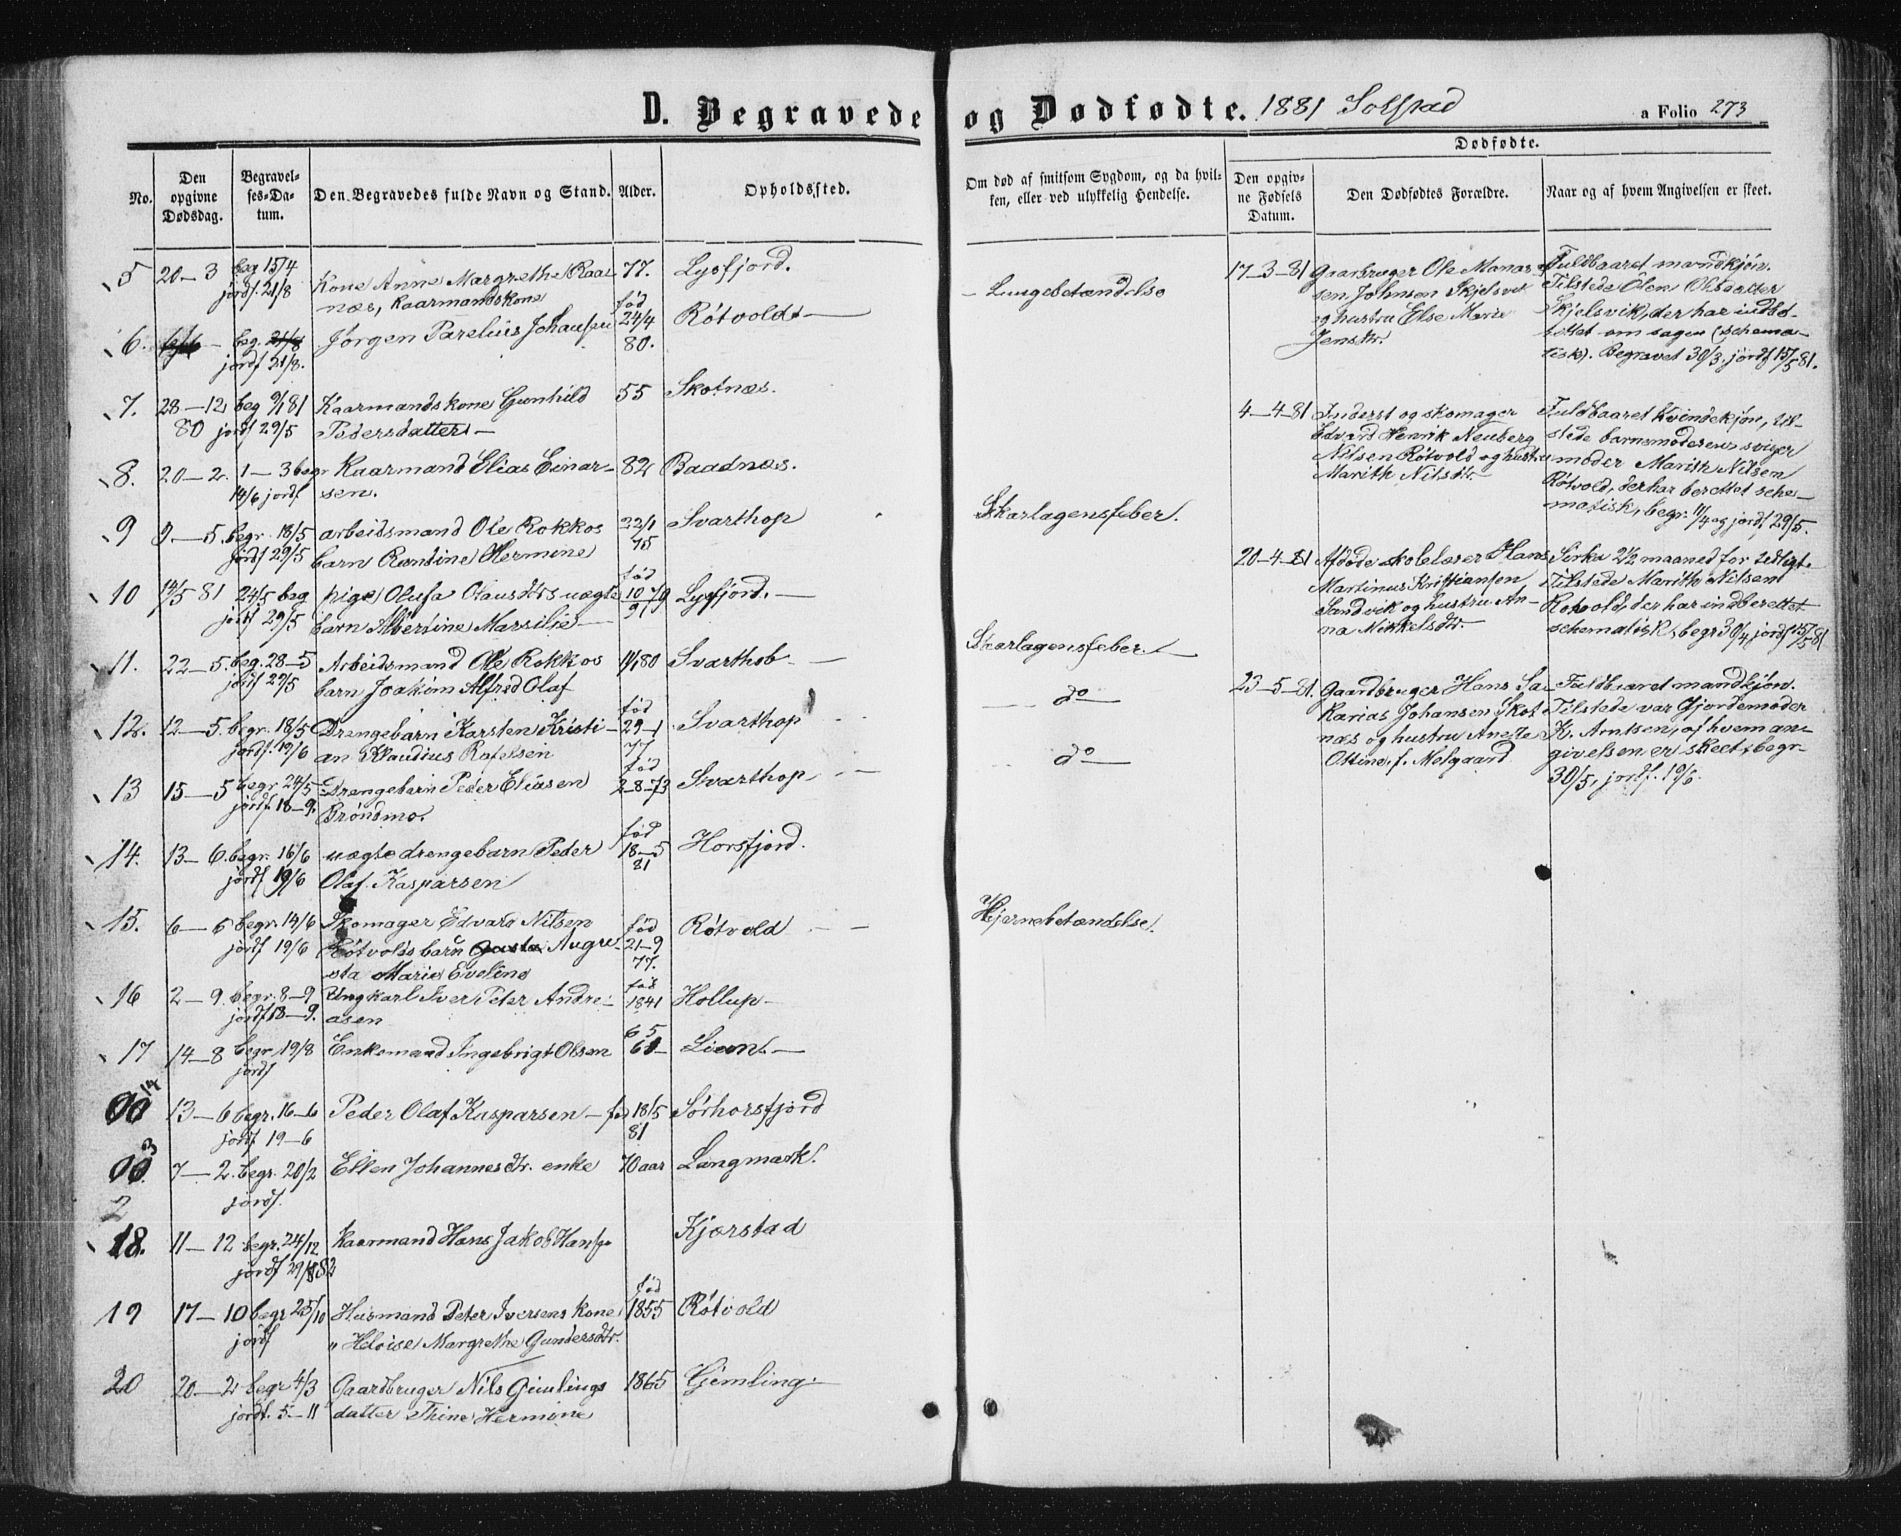 D. Begravede og Dødfødte. 1881 Solstad
a Folio 273
No.
Den opgivne Dødsdag.
Begravelses-Datum.
Den Begravedes fulde Navn og Stand.
Alder.
Opholdssted.
Om død af smitsom Sygdom, og da hvilken, eller ved ulykkelig Hendelse.
Dødfødte.
Den opgivne Fødsels Datum.
Den Dødfødtes Forældre.
Naar og af hvem Angivelsen er skeet.
5 20-3 beg 15/4 Kone Anne Margrethe Kaar- 77. Lysfjord. - Lungebetændelse
jordf 21/8 næs, Kaarmandskone
6. beg. 21/8 Jørgen Parelius Johansen fød 24/4 80. Røtvold
jordf 21/8.
7. 28-12 80 beg 9/1 81 Kaarmandskone Gunhild 55 Skotnæs.
jordf 29/5 Pedersdatter
8. 20-2. 1-3 begr Kaarmand Elias Einar- 82 Baadnæs.
14/6 jordf sen.
9 9-5. begr. 18/5 arbeidsmand Ole Rokkos 22/1 75 Svarthop Skarlagensfeber.
jordf 29/5 barn Hermine
10 14/5 81 24/5 beg pige Olufa Olausdtrs uægte fød 10/9 Lysfjord.
jordf 29/5 barn Albertine Marsilie
11. 22-5. beg. 28-5 Arbeidsmand Ole Rokkos 80 Svarthob Skarlagensfeber.
jordf 29/5 barn Joakim Alfred Olaf
12. 12-5. begr. 18/5 Drengebarn Karsten Kristi- fød 29-1 77 Svarthop do
jordf. 19/6 an Klaudius Rafelsen
13 15-5 begr 24/5 Drengebarn Peder Eliasen fød 2-8-73 Svarthop do
jordf. 18-9. Brøndmo.
14. 13-6. begr. 16/6 uægte drengebarn Peder fød 18-5 81 Horsfjord.
jordf 19/6 Olaf Kasparsen
15. 6-6 begr. 14/6 Skomager Edvard Nilsen fød 21-9 77. Røtvold Hjernebetændelse.
jordf 19/6 Røtvolds barn Augu-
sta Marie Eveline
16 2-9. begr. 8-9 Ungkarl Iver Peter Andre- fød 1841 Hollup
jordf 18-9. asen
17 14-8 begr 19/8 Enkemand Ingebrigt Olsen 65 Lien.
jordf
14 13-6 begr. 16-6 Peder Olaf Kasparsen - fød 18/5 81 Sørhorsfjord
jordf 19-6
3 7-2. begr. 20/2 Ellen Johannesdtr. enke 70 aar Langmark.
jordf.
2
18. 11-12 begr. 24/12 Kaarmand Hans Jakob Hansen Kjærstad
jordf 29/8 82
19 17-10 begr 25/10 Husmand Peter Iversens kone fød 1855 Røtvold
jordf Heloise Margrethe Gundersdtr.
20 20-2 begr 4/3 Gaardbruger Nils Gimlings 1865 Gimling
jordf. 5-11 datter Thine Hermine
17-3-81 Gaardbruger Ole Manas-
sen Johnsen Skjelsvik
og hustru Else Marie
Jensdtr.
Fuldbaaret mandkjøn.
Tilstede Ølen Olsdatter
Skjelsvik, der har indbe-
rettet om sagen (schema-
tisk). Begravet 30/3, jordf 15/5 81.
4-4-81 Inderst og skomager
Edvard Henrik Neuberg
Nilsen Røtvold og hustru
Marith Nilsdtr.
Fuldbaaret kvindekjøn, til-
stede barnemoderens sviger
moder Marith Nilsen
Røtvold, der har berettet sche-
matisk, begr. 11/4 og jordf 29/5.
20-4-81 Afdøde skolelærer Hans
Martinus Kristiansen
Sandvik og hustru An-
na Nikkelsdtr.
Sirka 2 1/2 maaned for tidligt.
Tilstede Marith Nilsen
Rotvold, der har indberettet
schematisk, begr 30/4, jordf 15/5 81
23-5-81. Gaardbruger Hans Sa-
karias Johansen Skot-
næs og hustru Anette
Ottine, f. Melgaard
Fuldbaaret mandkjøn.
Tilstede var Gjordemoder
K. Arntsen, af hvem an-
givelsen er skeet, begr.
30/5, jordf. 19/6.